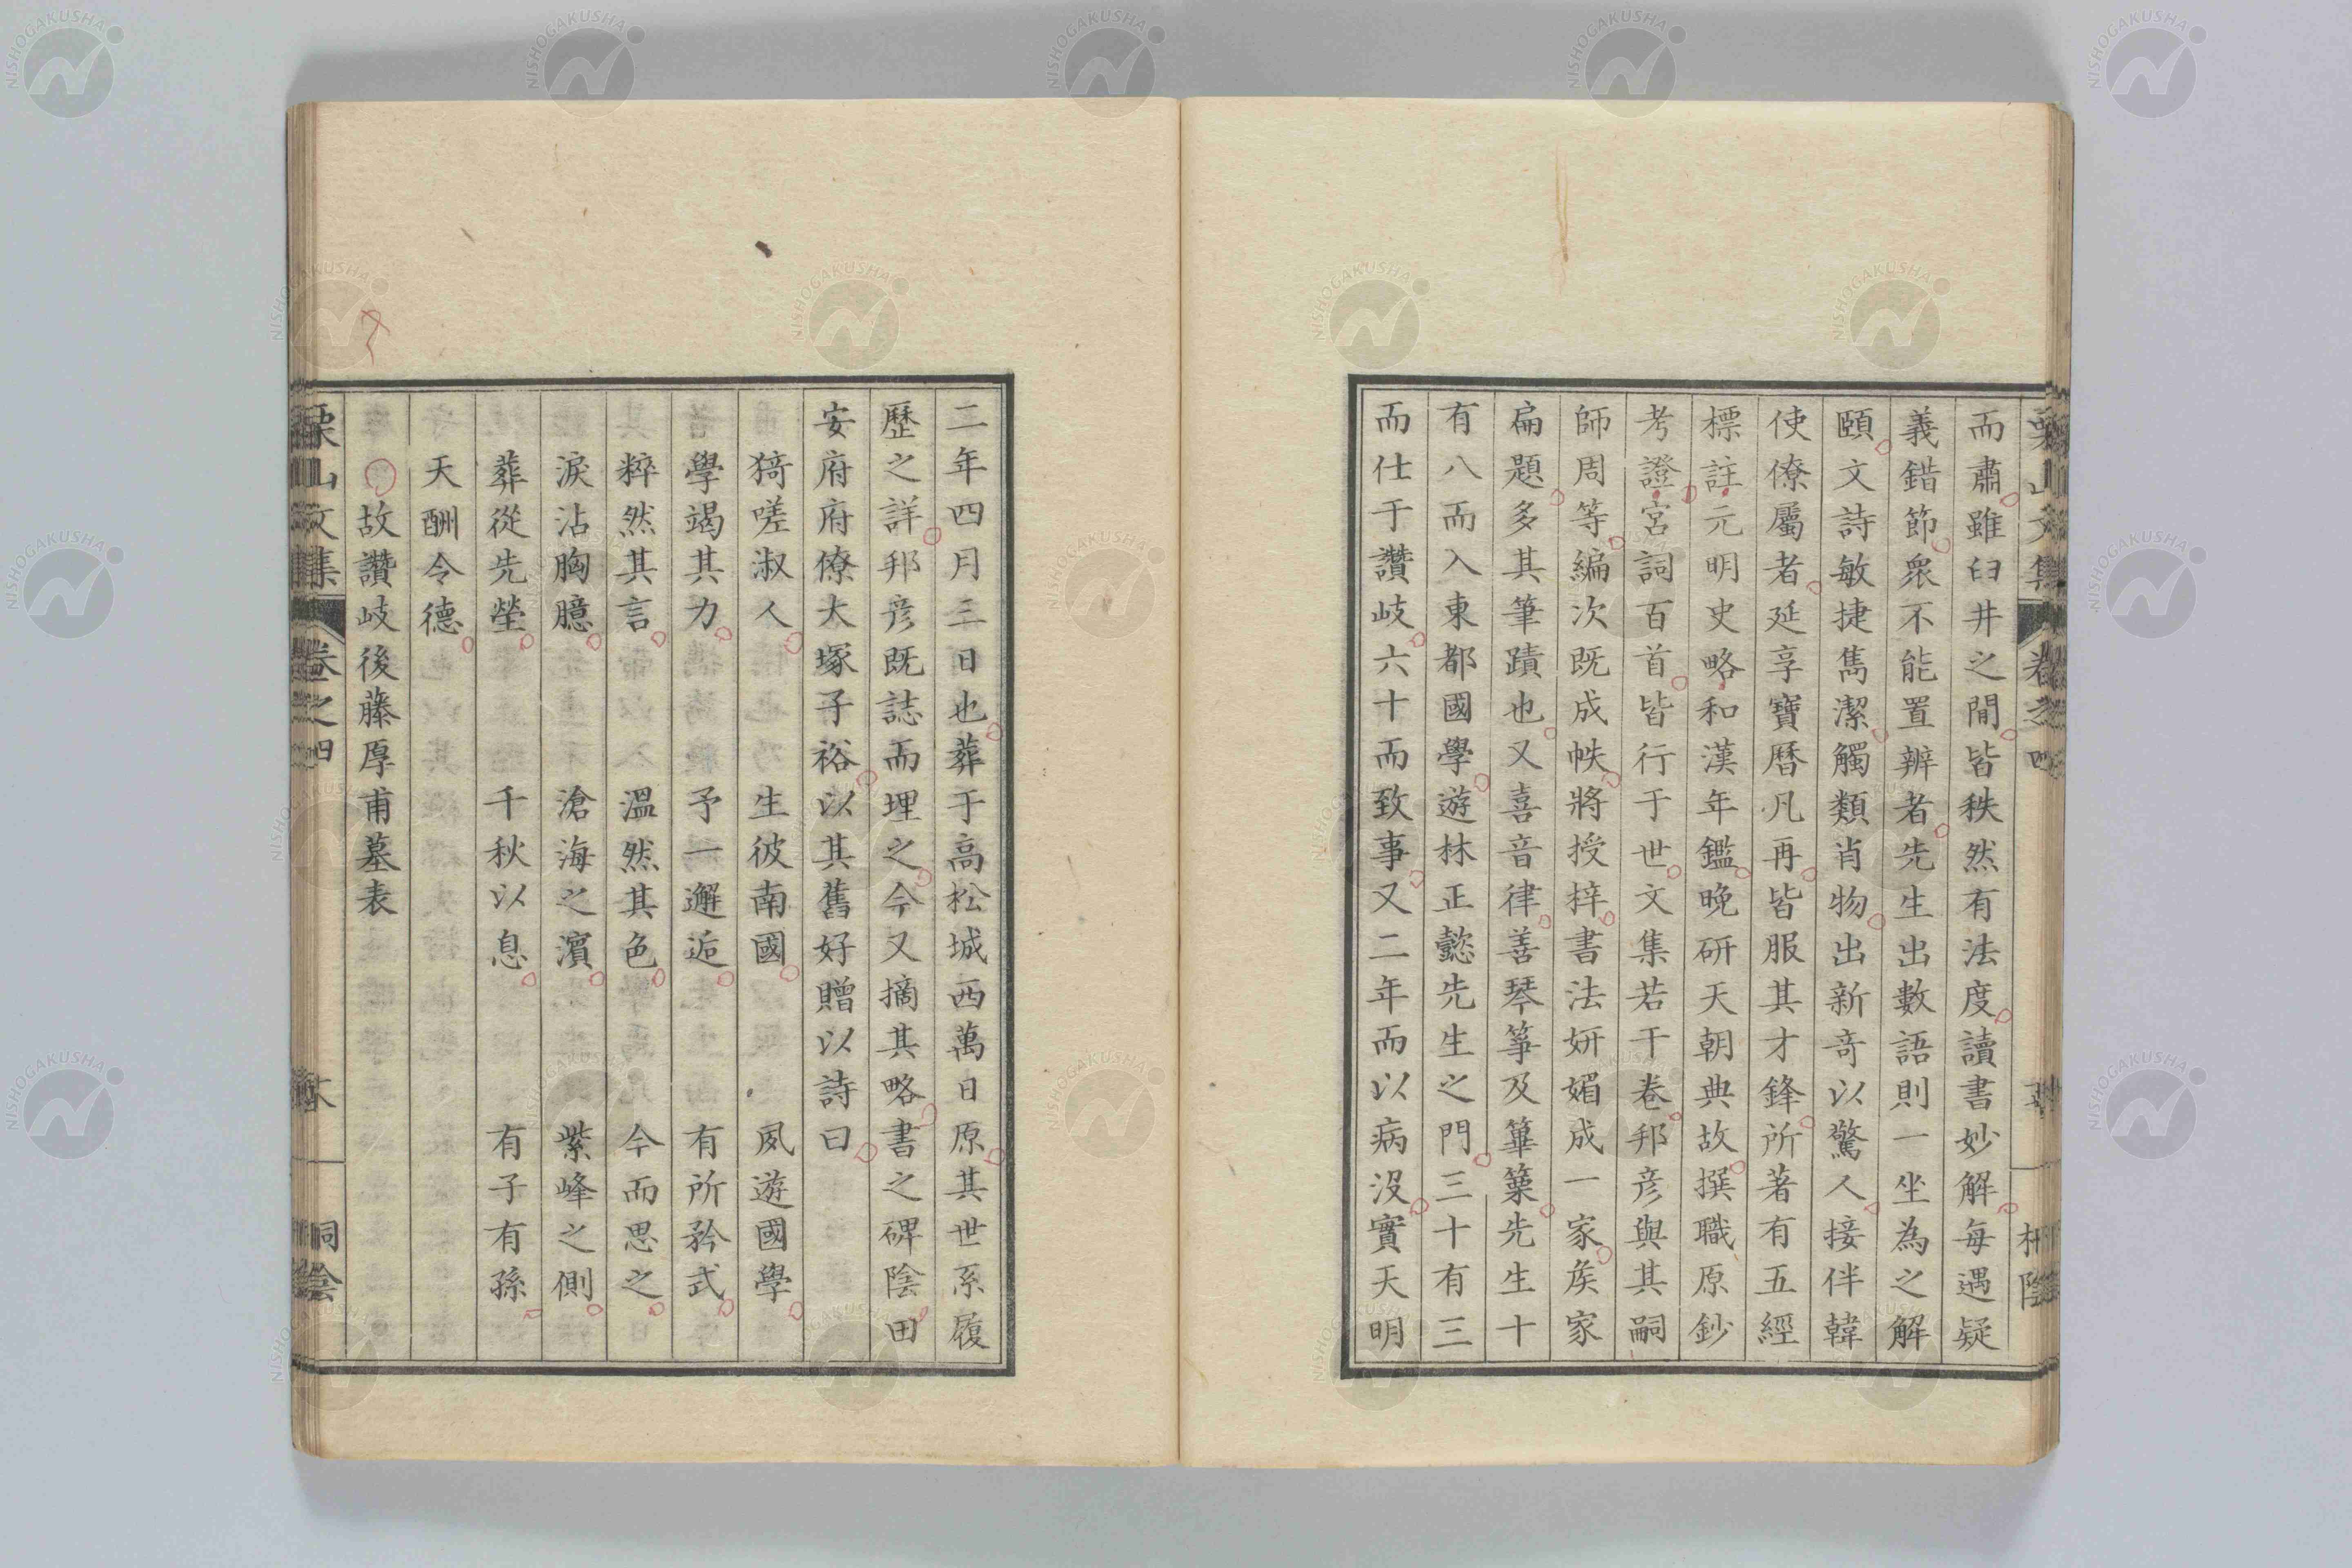 而肅雖臼井之閒皆秩然有法度讀書妙解每遇疑
義錯節衆不能置辨者先生出數語則一坐為之解
頤文詩敏捷雋潔觸類肖物出新奇以驚人接伴韓
使僚屬者延享寶曆凡再皆服其才鋒所著有五經
標註元明史略和漢年鑑晚研天朝典故撰職原鈔
考證宮詞百首皆行于世文集若干卷邦彥與其嗣
師周等編次既成帙將授梓書法妍媚成一家矦家
扁題多其筆蹟也又喜音律善琴箏及篳篥先生十
有八而入東都國學遊林正懿先生之門三十有三
而仕于讚岐六十而致事又二年而以病没實天明
二年四月三日也葬于高松城西萬日原其世系履
歷之詳邦彥既誌而埋之今又摘其略書之碑陰田
安府府僚大塚子裕以其舊好贈以詩曰
猗嗟淑人 生彼南國 夙遊國學
學竭其力 予一邂逅 有所矜式
粹然其言 溫然其色 今而思之
淚沾胸臆 滄海之濱 紫峰之側
葬從先塋 千秋以息 有子有孫
天酬令德
故讚岐後藤厚甫墓表
栗山文集 卷之四
NISHOGAKUSHA